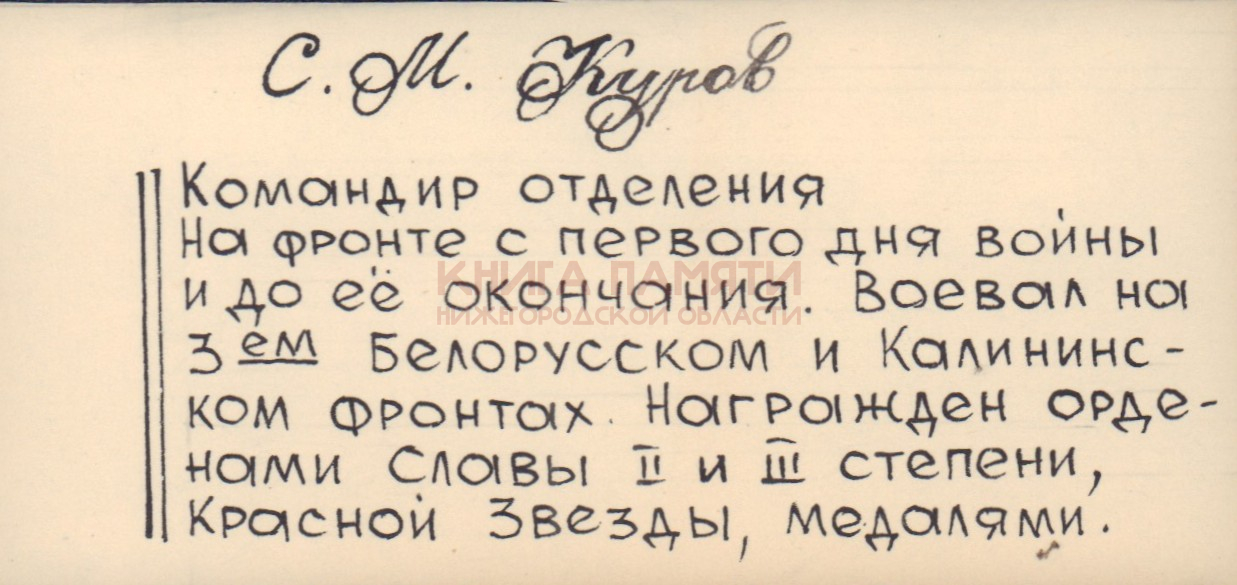 С. М. Куров
Командир отделения
На фронте с первого дня войны
и до её окончания. Воевал на
КНИГА ПАМЯТИ
НИЖЕГОРОДСКОЙ ОБЛАСТИ
3ем Белорусском и Калининс-
ком фронтах. Награжден орде-
нами Славы II и III степени,
Красной Звезды, медалями.